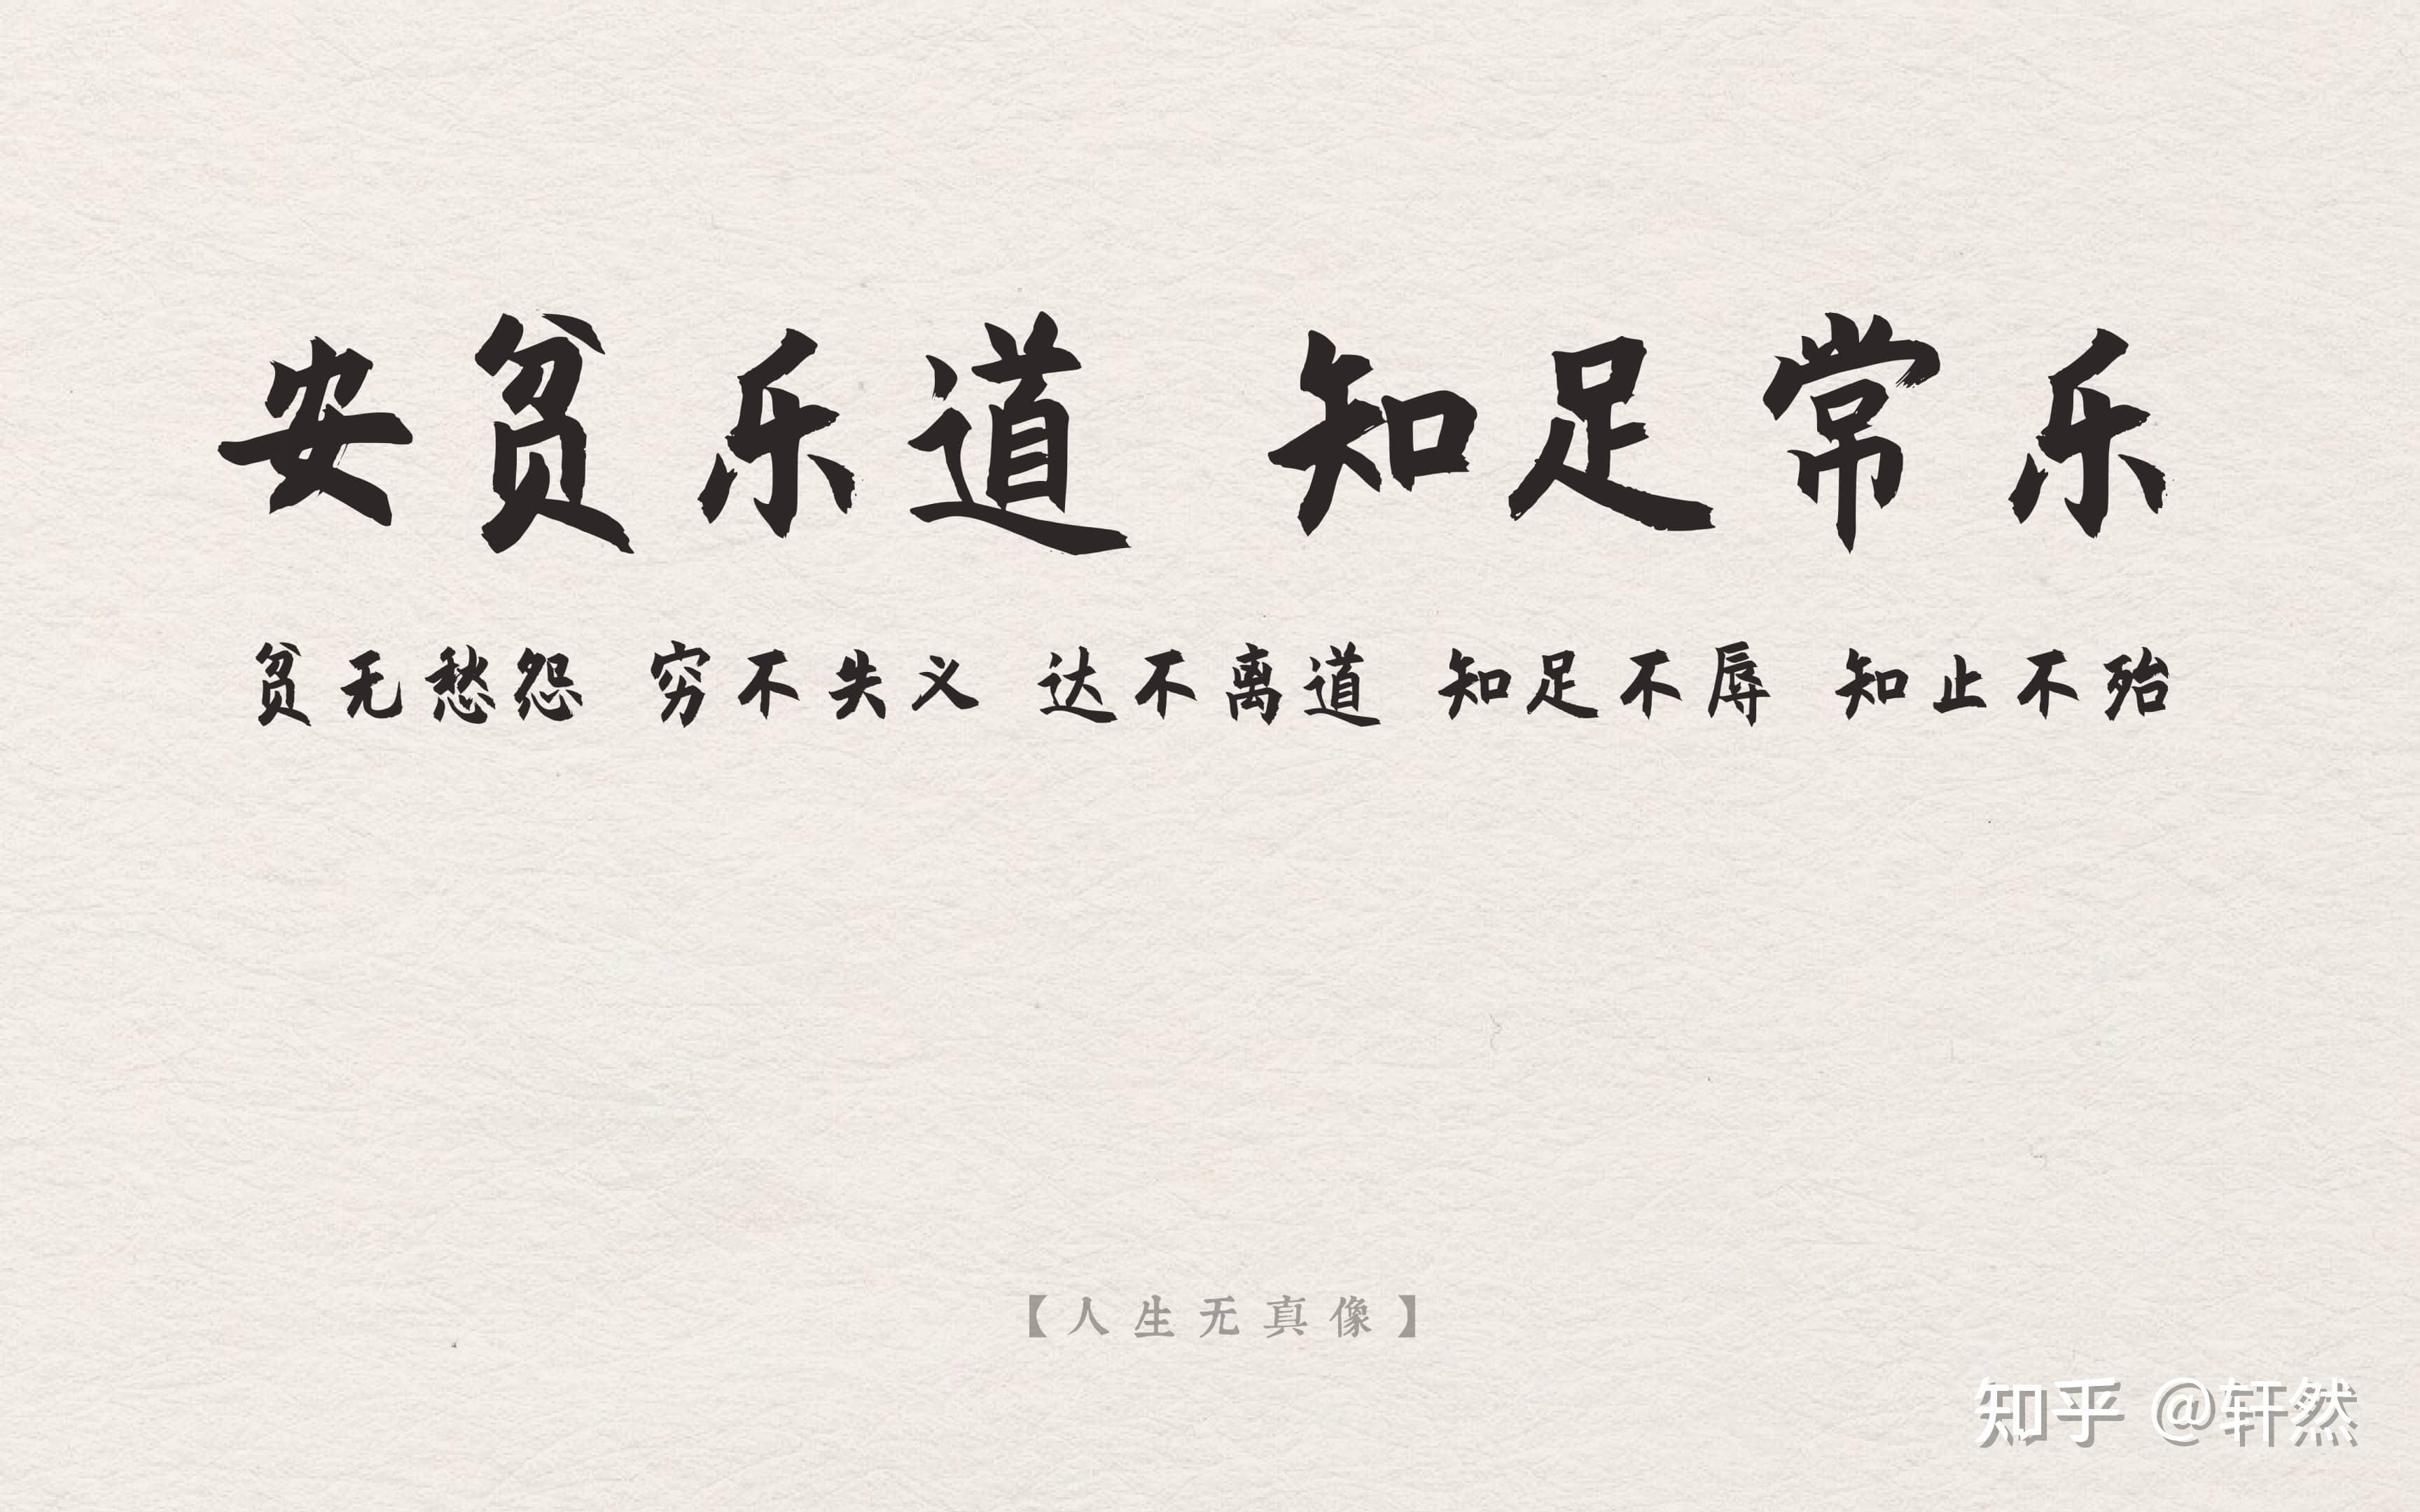 安贫乐道 知足常乐
贫无愁怨 穷不失义 达不离道 知足不辱 知止不殆
【人生无真像】
知乎 @轩然